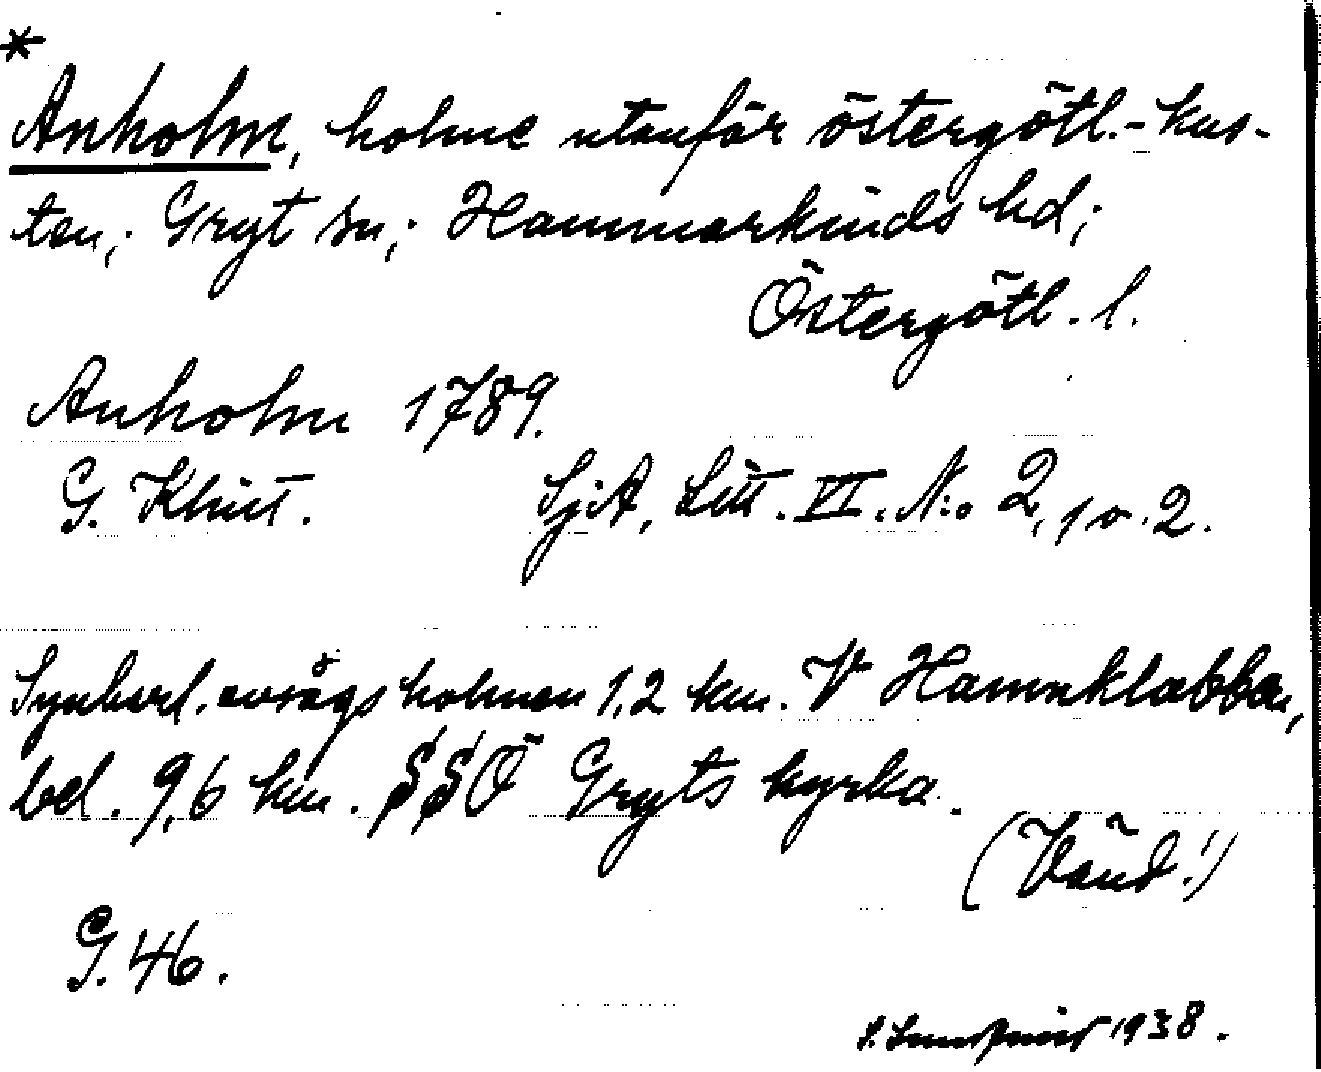 *
Anholm, holme utanför östergötl.-kus-
ten; Gryt sn; Hammarkinds hd;
Östergötl. l.
Anholm 1789.
G. Klint. SjA, Litt. VI. N:o 2, 1 o. 2.
Synbarl. avsågs holmen 1,2 km. V Hamnklabben,
bel. 9,6 km. SSÖ Gryts kyrka.
(Vänd!)
G. 46.
1938.